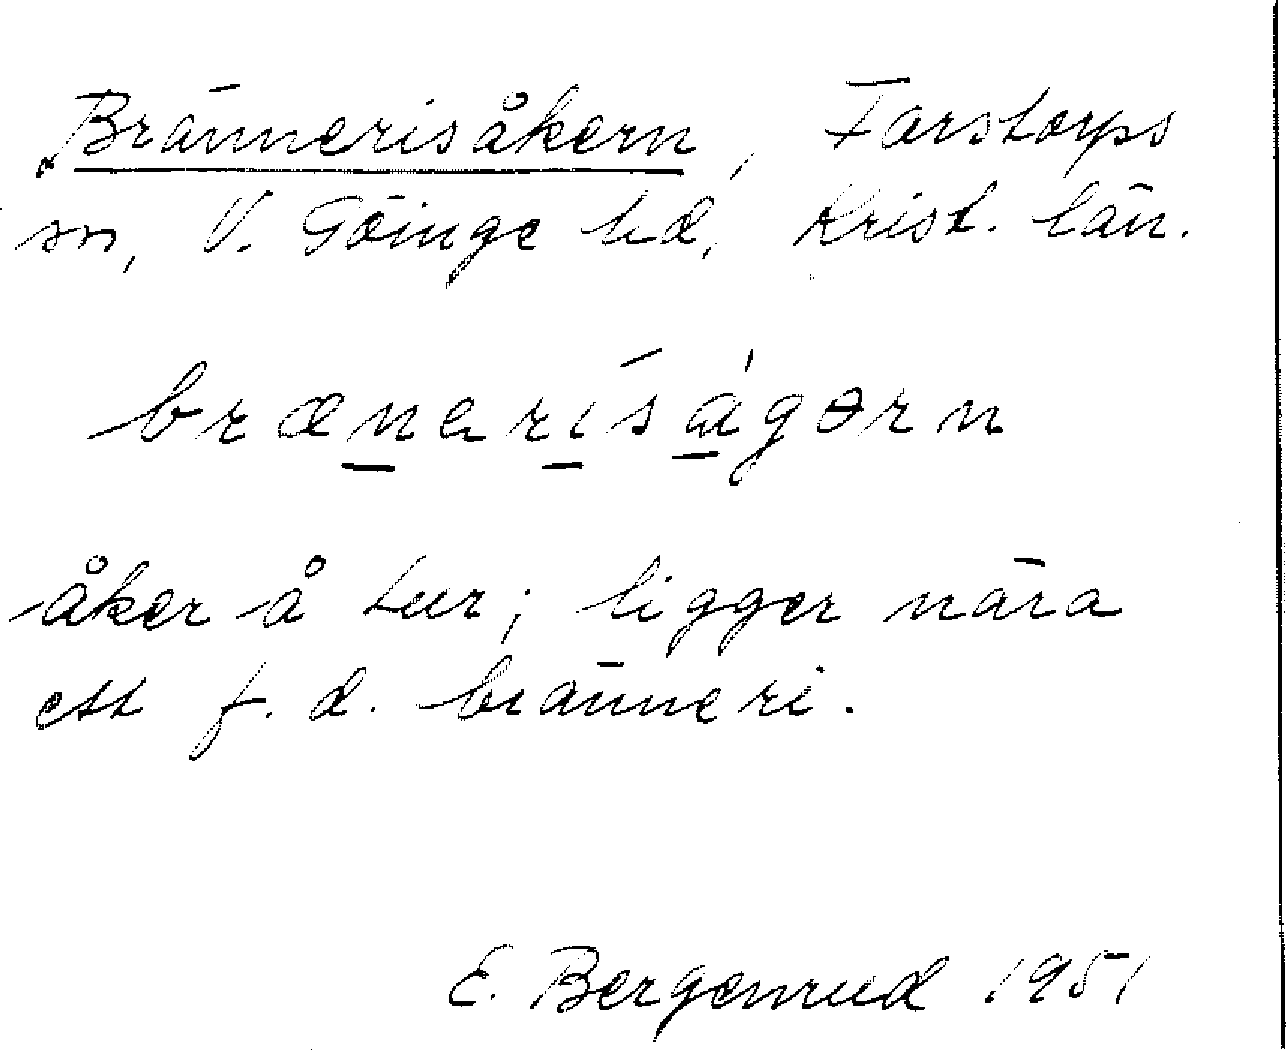 Brännerisåkern, Farstorps
sn, V. Göinge hd, Krist. län.
bræneríságərn
åker å Lur; ligger nära
ett f. d. bränneri.
E. Bergenrud 1951